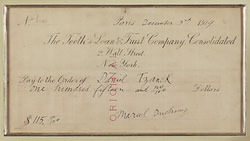 No
Paris December 3rd 1919
The Teeth's Loan & Trust Company, Consolidated
2 Wall Street,
New York.
Pay to the Order of Daniel Tzanck
One hundred fifteen and no/100 Dollars
ORIGINAL
$ 115. no/100
Marcel Duchamp